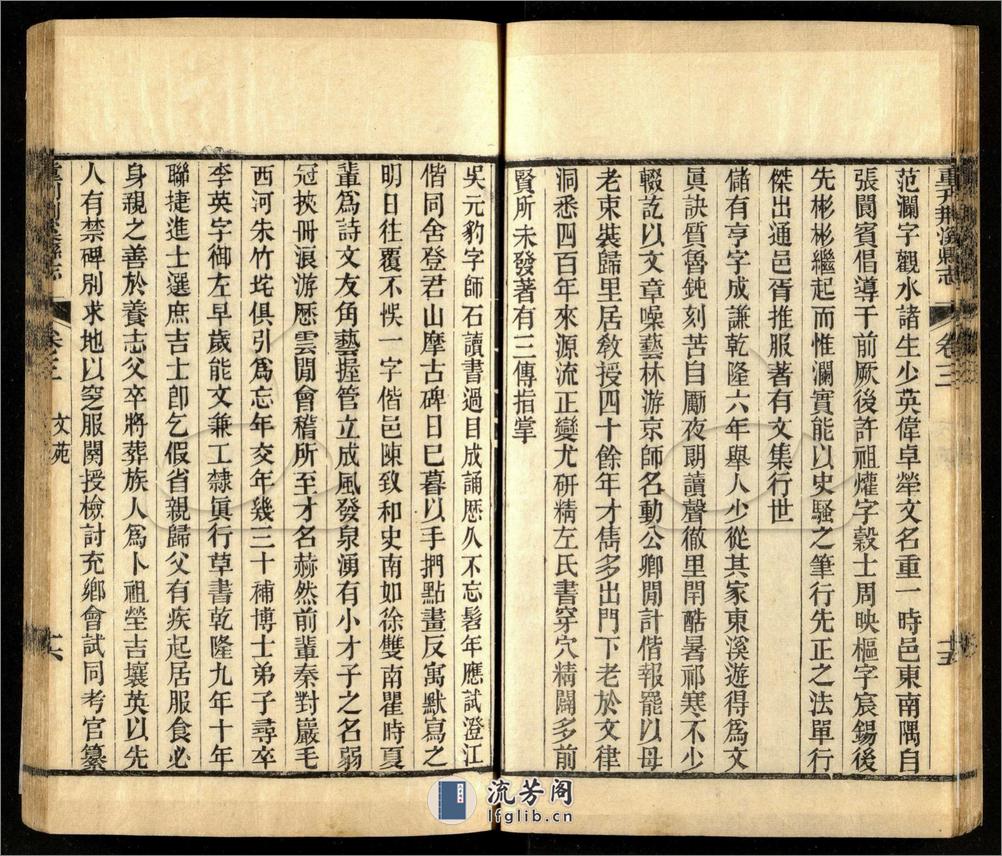 重刋荆溪縣志 卷三 十五
范瀾字觀水諸生少英偉卓犖文名重一時邑東南隅自
張閬賓倡導于前厥後許祖爟字榖士周映樞字宸錫後
先彬彬繼起而惟瀾實能以史騷之筆行先正之法單行
傑出通邑胥推服著有文集行世
儲有亨字成謙乾隆六年舉人少從其家東溪遊得爲文
眞訣質魯鈍刻苦自勵夜朗讀聲徹里閈酷暑祁寒不少
輟訖以文章噪藝林游京師名動公卿閒計偕報罷以母
老束裝歸里居敎授四十餘年才雋多出門下老於文律
洞悉四百年來源流正變尤研精左氏書穿穴精闢多前
賢所未發著有三傳指掌
吳元豹字師石讀書過目成誦歴久不忘髫年應試澄江
偕同舍登君山摩古碑日已暮以手捫點畫反寓默寫之
明日往覆不悮一字偕邑陳致和史南如徐雙南瞿時夏
輩爲詩文友角藝握管立成風發泉湧有小才子之名弱
冠挾冊浪游歴雲閒會稽所至才名赫然前輩秦對巖毛
西河朱竹垞俱引爲忘年交年幾三十補博士弟子尋卒
李英字御左早歲能文兼工隸眞行草書乾隆九年十年
聯捷進士選庶吉士卽乞假省親歸父有疾起居服食必
身親之善於養志父卒將葬族人爲卜祖塋吉壤英以先
人有禁碑別求地以窆服闋授檢討充鄉會試同考官纂
重刋荆溪縣志 卷三 文苑 十六
流芳阁
lfglib.cn